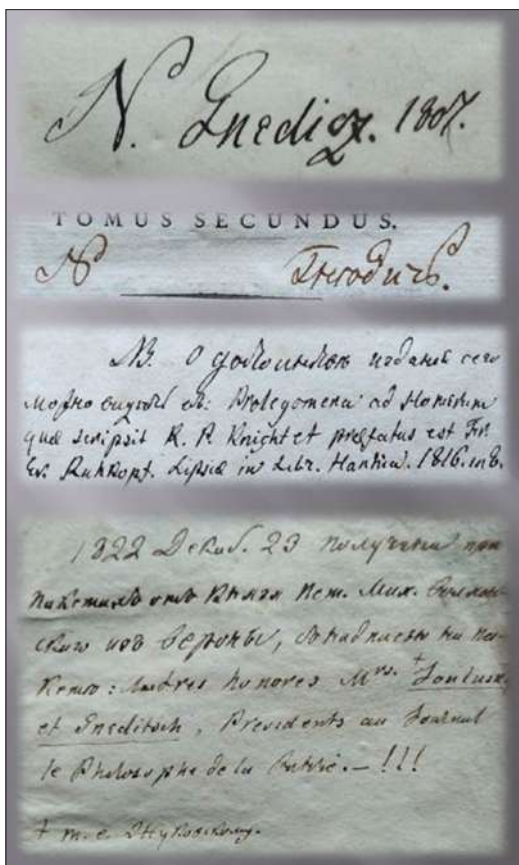 N. Gnedicz. 1807.
TOMUS SECUNDUS.
N Гнѣдичъ.
NB. О достоинствѣ изданія сего
можно видѣть въ: Prolegomena ad Homerum
quæ scripsit R. P. Knight et præfatus est Fr.
Ev. Ruhkopf. Lipsiæ in Libr. Hahnian. 1816. in 8.
1822 Декаб. 23 получены при
отъ Князя Пет. Мих.
скаго изъ Вероны, съ надписью на
: honores Mrs. +
et Gneditsch, Presidents au Journal
le Philosophe de la . — !!!
+ т. е. Жуковскому.